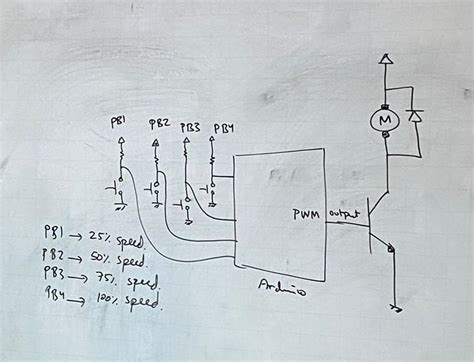 PB1 PB2 PB3 PB4
M
PWM output
PB1 → 25% speed.
PB2 → 50% speed.
PB3 → 75% speed.
PB4 → 100% speed.
Arduino